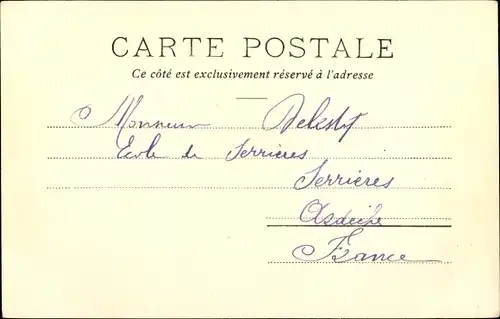 CARTE POSTALE
Ce côté est exclusivement réservé à l'adresse
Monsieur
Ecole de Serrières
Serrières
Ardèche
France